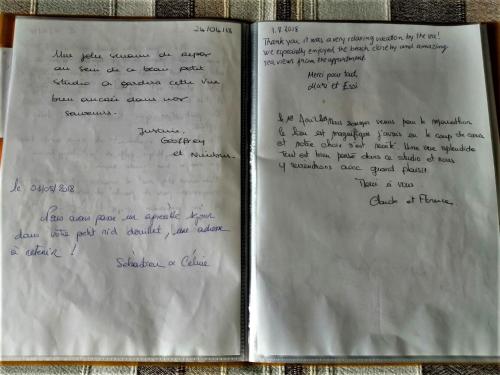 24/04/18
Une jolie semaine de repos
au sein de ce beau petit
studio. On gardera cette vue
bien ancrée dans nos
souvenirs.
Justine,
Geoffrey
et
le 08/2018
Nous avons passé un agréable séjour
dans votre petit nid douillet, une adresse
à retenir !
Sébastien & Céline
1.8.2018
Thank you, it was a very relaxing vacation by the sea!
We especially enjoyed the beach close by and amazing
sea views from the appartment.
Merci pour tout,
et Essi
le Août Nous sommes venus pour le
le lieu est magnifique j'avais eu le coup de cœur
et notre choix s'est une vue splendide
Tout est bien pensé dans ce studio et nous
y reviendrons avec grand plaisir
Merci à vous
Claude et Florence